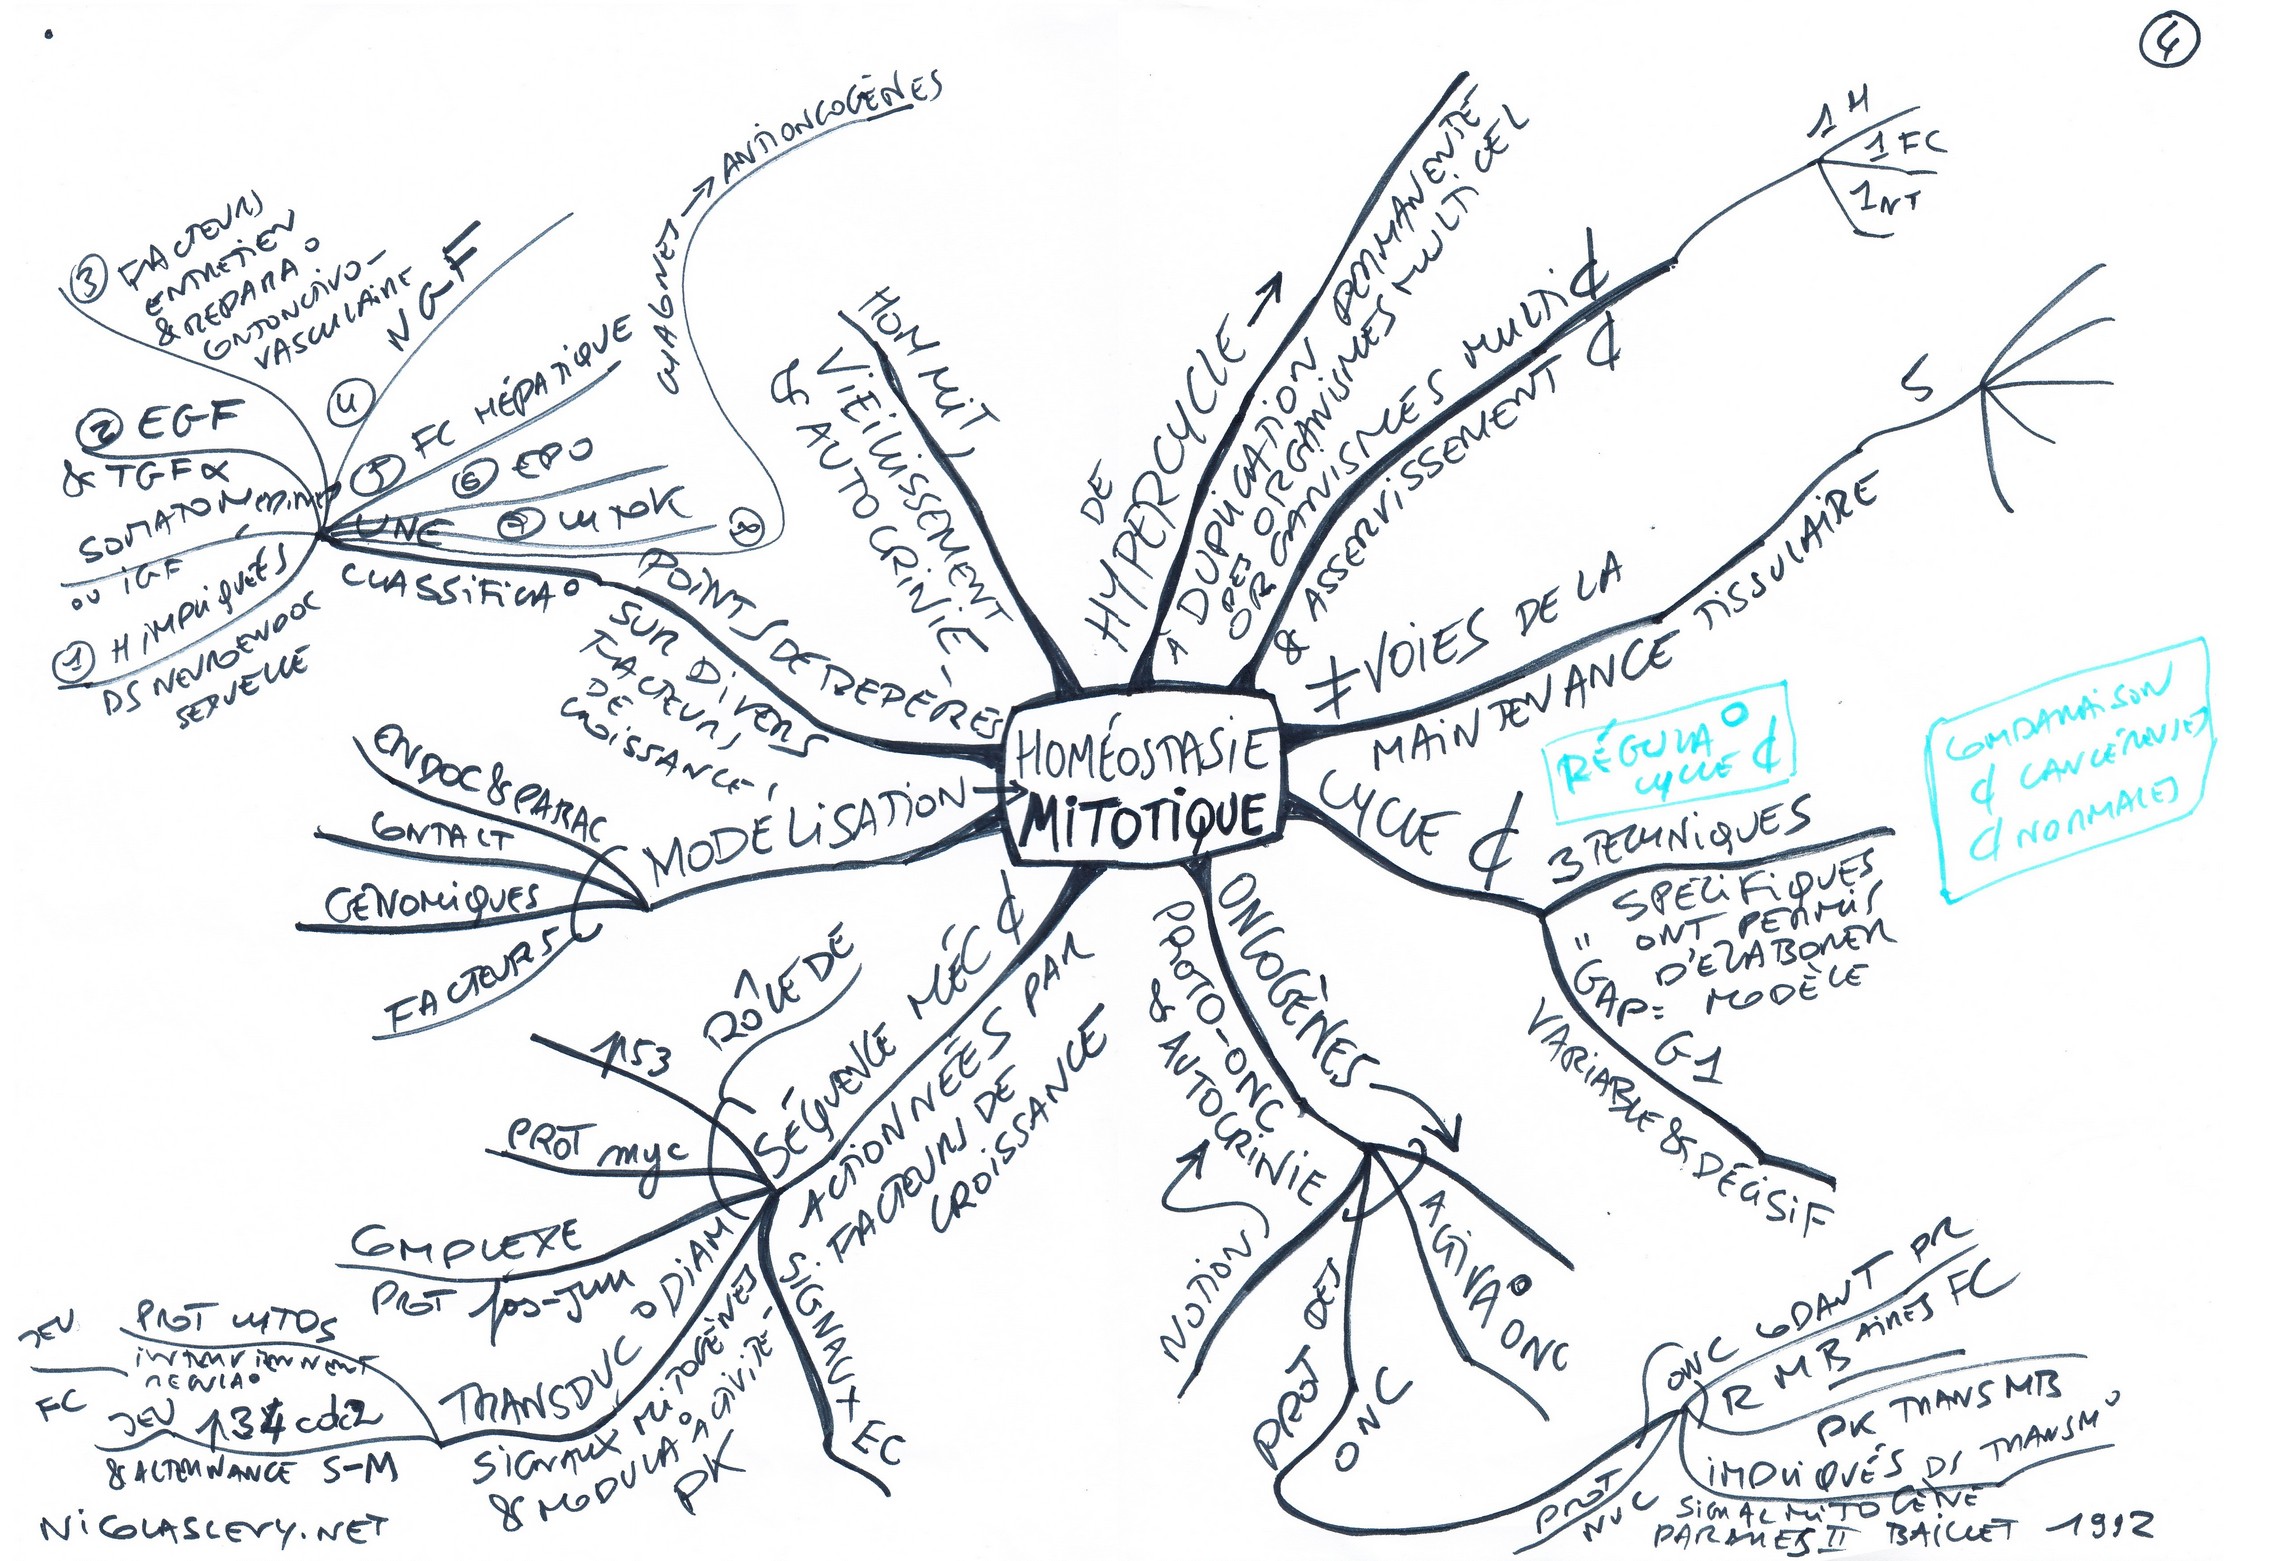 4
HOMÉOSTASIE
MITOTIQUE
DE
HYPERCYCLE →
À DUPLICATION PERMANENTE
DES ORGANISMES MULTI CEL
ORGANISMES MULTI ₵
& ASSERVISSEMENT ₵
1 H
1 FC
1 NT
≠ VOIES DE LA
MAINTENANCE TISSULAIRE
5
RÉGULA°
CYCLE ₵
COMPARAISON
₵ CANCÉREUSES
₵ NORMALES
CYCLE ₵
3 TECHNIQUES
SPÉCIFIQUES
ONT PERMIS
D'ELABORER
MODÈLE
"GAP= G1
VARIABLE & DÉCISIF
ONCOGÈNES
PROTO-ONC
& AUTOCRINIE
NOTION
PROT DES
ONC
ACTIVA° ONC
ONC CODANT PR
R MB AIRES FC
PK TRANS MB
IMPLIQUÉS DS TRANSM°
SIGNAL MITOGÈNE
PROT
NUC
PARAMES II BAILLET 1992
SÉQUENCE MÉC ₵
ACTIONNÉES PAR
FACTEURS DE
CROISSANCE
RÔLE DE
p53
PROT myc
COMPLEXE
PROT fos-jun
TRANSDUC° DIAM
SIGNAUX MITOGÈNES
& MODULA° ACTIVITÉ
PK
SIGNAUX EC
JEU
FC
PROT CYTOS
INTERVIENNENT
REGULA°
JEU p34 cdc2
& ALTERNANCE S-M
MODÉLISATION →
ENDOC & PARAC
CONTACT
GÉNOMIQUES
FACTEURS
POINTS DE REPÈRES
SUR DIVERS
FACTEURS
DE
CROISSANCE
UNE
CLASSIFICA°
1 H IMPLIQUÉS
DS NEUROENDOC
SEXUELLE
SOMATOMEDINES
OU IGF
2 EGF
& TGF α
3 FACTEURS
ENTRETIEN
& REPARA°
CONJONCTIVO-
VASCULAIRE
4 NGF
5 FC HÉPATIQUE
6 EPO
7 CYTOK
8
CHALONES → ANTIONCOGÈNES
HOM MIT,
VIEILLISSEMENT
₵ AUTOCRINIE
NICOLASLEVY.NET